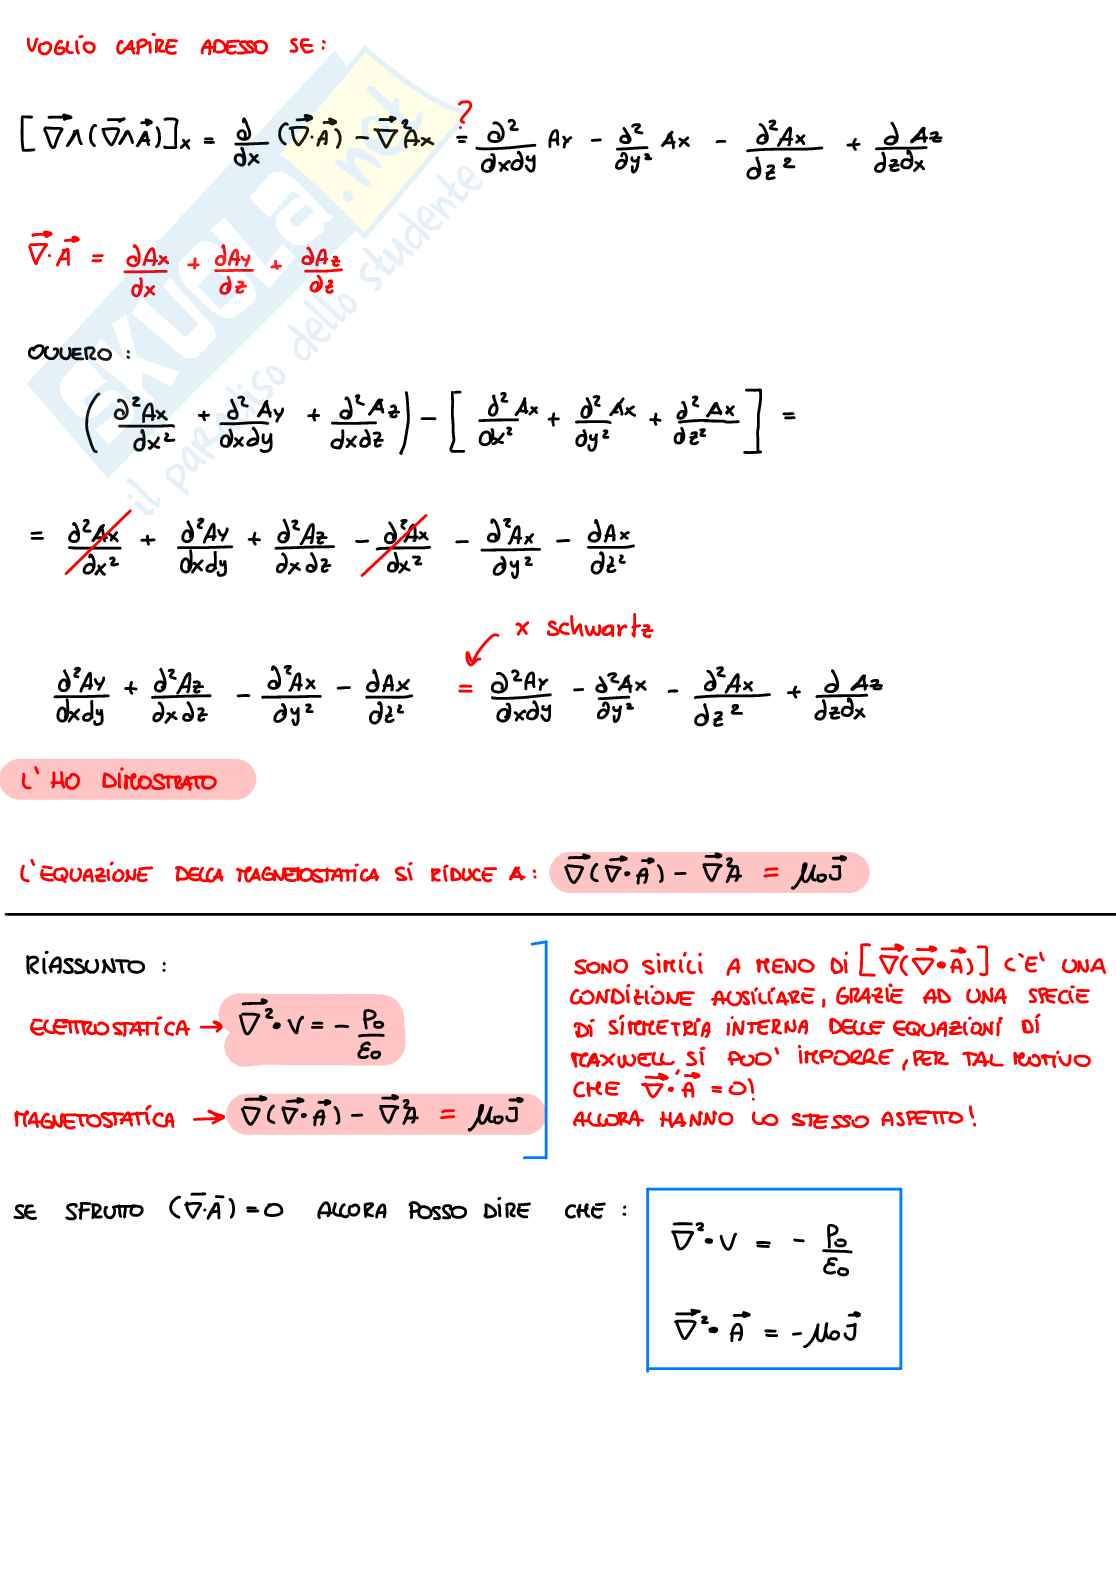 VOGLIO CAPIRE ADESSO SE:
[∇⃗∧(∇⃗∧A⃗)]x = ∂/dx (∇⃗·A⃗) − ∇⃗²Ax =? ∂²/∂x∂y Ay − ∂²/∂y² Ax − ∂²Ax/dz² + ∂ Az/dz∂x
∇⃗·A⃗ = ∂Ax/dx + ∂Ay/dz + ∂Az/dz
OVVERO:
(∂²Ax/dx² + ∂²Ay/dxdy + ∂²Az/dxdz) − [∂²Ax/∂x² + ∂²Ax/∂y² + ∂²Ax/dz²] =
= ∂²Ax/∂x² + ∂²Ay/dxdy + ∂²Az/∂x∂z − ∂²Ax/∂x² − ∂²Ax/∂y² − ∂Ax/∂z²
x schwartz
∂²Ay/dxdy + ∂²Az/∂x∂z − ∂²Ax/∂y² − ∂Ax/∂z² = ∂²Ay/∂x∂y − ∂²Ax/∂y² − ∂²Ax/dz² + ∂ Az/dz∂x
L'HO DIMOSTRATO
L'EQUAZIONE DELLA MAGNETOSTATICA SI RIDUCE A: ∇⃗(∇⃗·A⃗) − ∇⃗²A = μ₀J⃗
RIASSUNTO:
ELETTROSTATICA → ∇⃗²·V = − ρ₀/ε₀
MAGNETOSTATICA → ∇⃗(∇⃗·A⃗) − ∇⃗²A = μ₀J⃗
SONO SIMILI A MENO DI [∇⃗(∇⃗·A⃗)] C'E' UNA
CONDIZIONE AUSILIARE, GRAZIE AD UNA SPECIE
DI SIMMETRIA INTERNA DELLE EQUAZIONI DI
MAXWELL SI PUO' IMPORRE, PER TAL MOTIVO
CHE ∇⃗·A⃗ = 0!
ALLORA HANNO LO STESSO ASPETTO!
SE SFRUTTO (∇⃗·A⃗)=0 ALLORA POSSO DIRE CHE:
∇⃗²·V = − ρ₀/ε₀
∇⃗²·A⃗ = −μ₀J⃗
SKUOLA.net
il paradiso dello studente